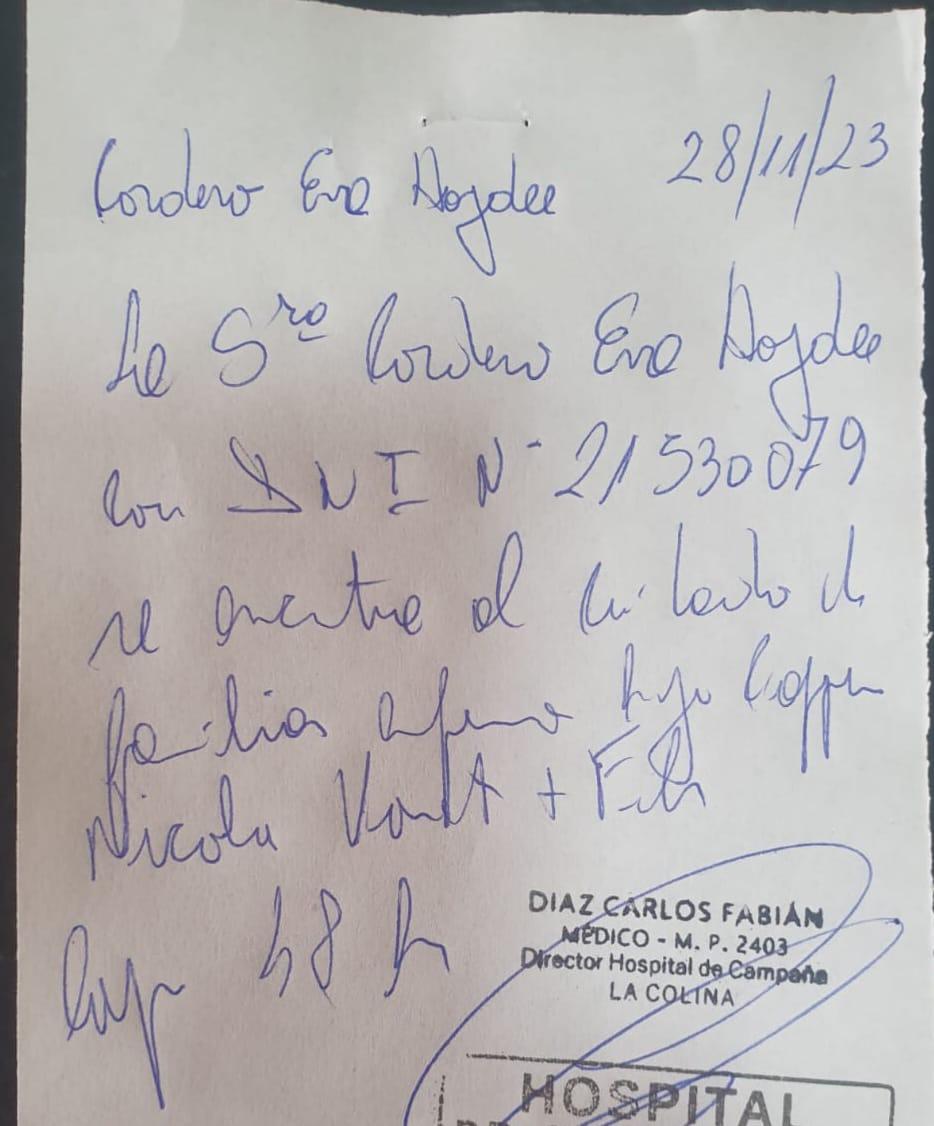 Cordero Eva Haydee 28/11/23
La Sra Cordero Eva Haydee
con DNI N° 21530079
se encuentra al cuidado de
familiar enfermo hijo
Nicola + Fieb
48 h
DIAZ CARLOS FABIÁN
MÉDICO - M. P. 2403
Director Hospital de Campaña
LA COLINA
HOSPITAL